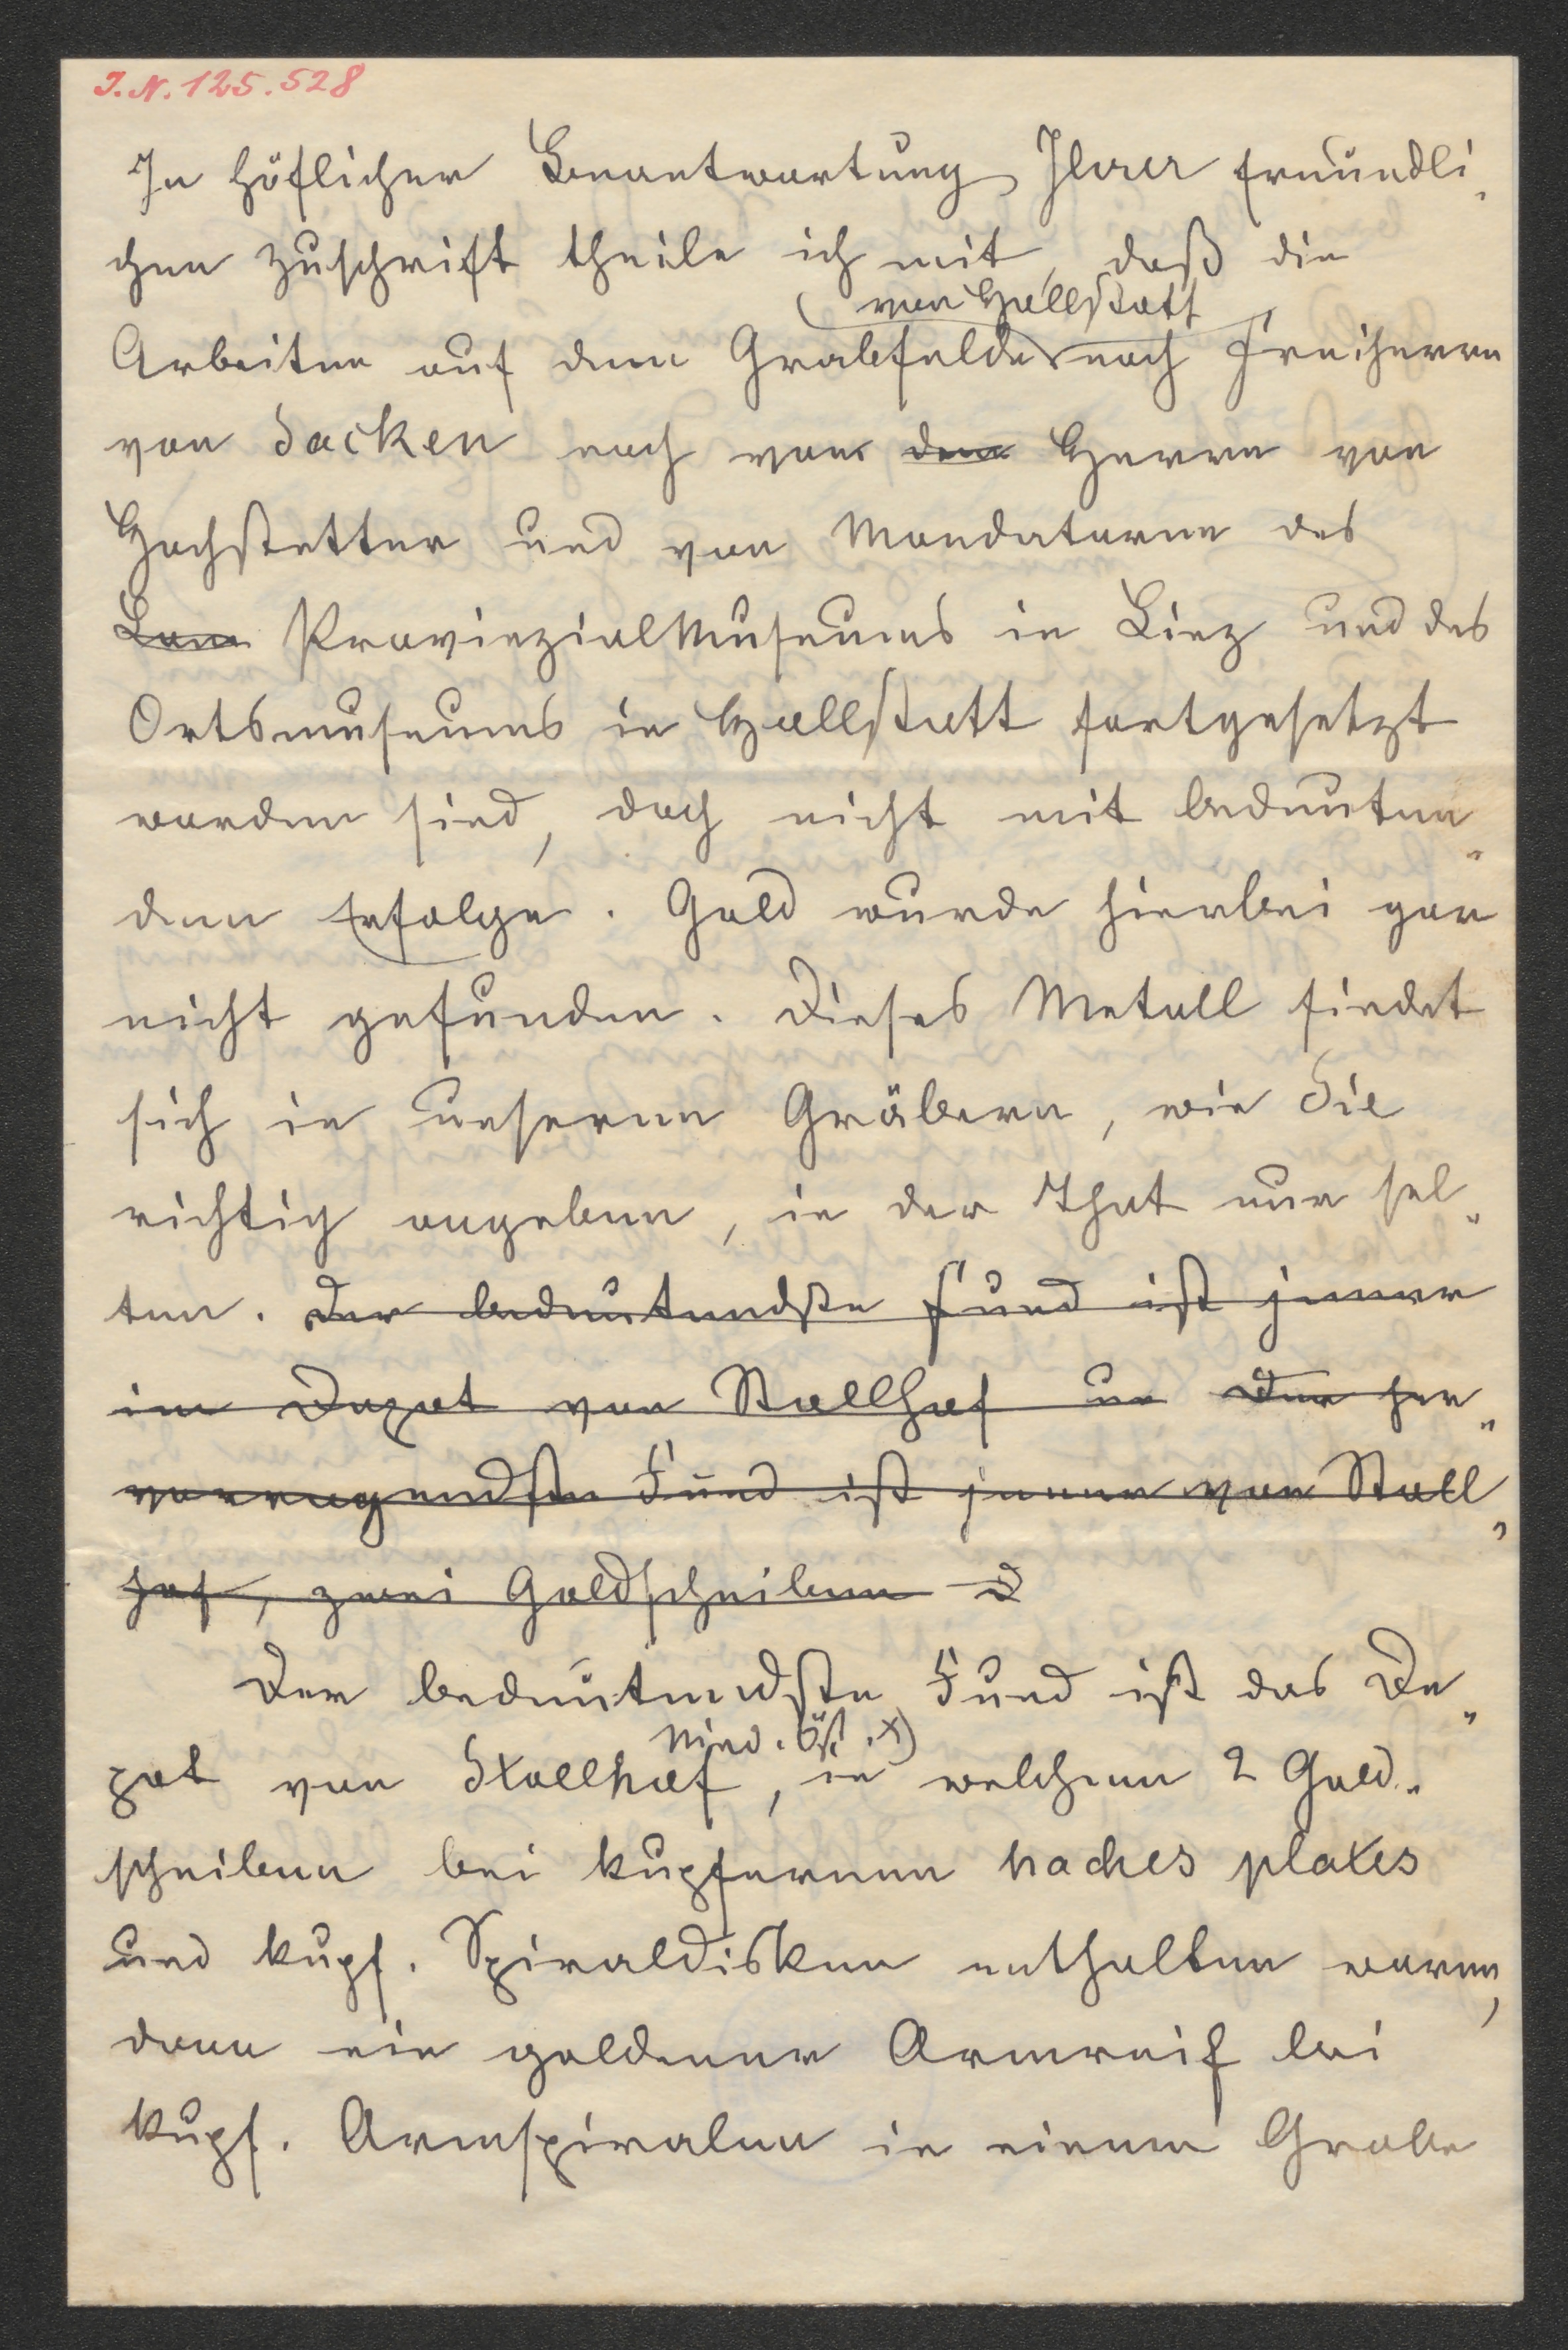 I. N. 125.528
In höflicher Beantwortung Ihrer freundli-
chen Zuschrift theile ich mit, daß die
von Hallstatt
Arbeiten auf dem Grabfelde nach Freiherrn
von Sacken noch von dem Herrn von
Hochstetter und von Mandataren des
Lan ProvinzialMuseums in Linz und des
Ortsmuseums in Hallstatt fortgesetzt
worden sind, doch nicht mit bedeuten-
den Erfolge. Gold wurde hierbei gar
nicht gefunden. Dieses Metall findet
sich in unseren Gräbern, wie Sie
richtig angeben, in der That nur sel-
ten. Der bedeutendste Fund ist jener
im Depot von Stollhof un Der her-
vorragendste Fund ist jener von Stoll-
hof, zwei Goldscheiben D
Der bedeutendste Fund ist das De-
Nied. Öst. x)
pot von Stollhof, in welchem 2 Gold-
scheiben bei kupfernen haches plates
und kupf. Spiraldisken enthalten waren,
dann ein goldener Armreif bei
kupf. Armspiralen in einem Grabe